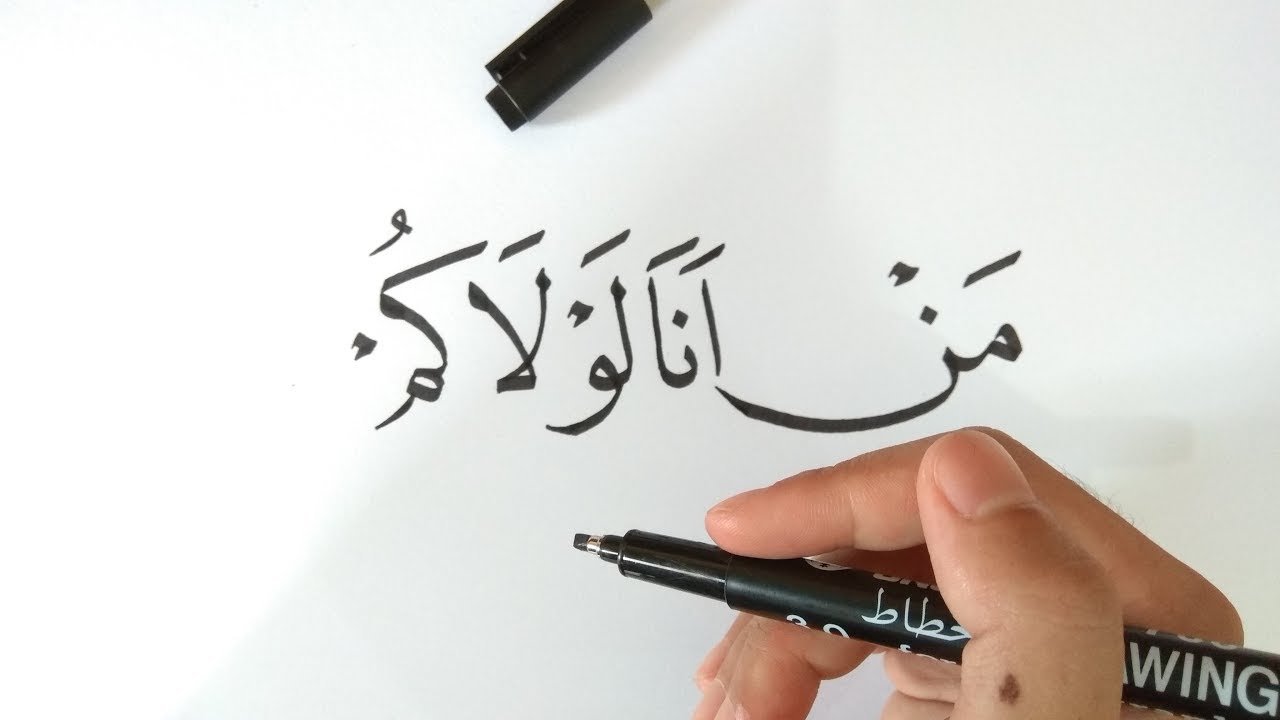 مَنْ اَنَا لَوْلَاكُمْ
خطاط
3.0
AWING